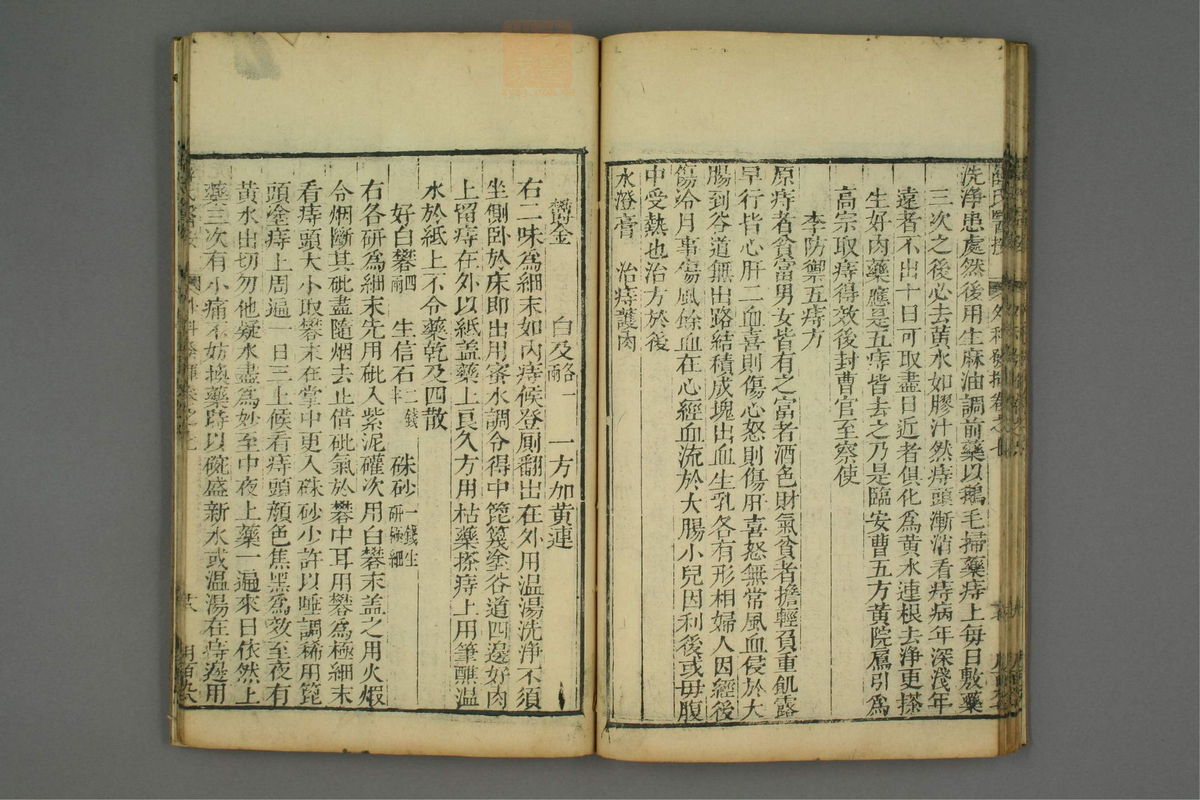 洗淨患處然後用生麻油調前藥以鵝毛掃藥痔上每日敷藥
三次之後必去黃水如膠汁然痔頭漸消看痔病年深淺年
遠者不出十日可取盡日近者俱化爲黃水連根去淨更搽
生好肉藥應是五痔皆去之乃是臨安曹五方黃院屬引爲
高宗取痔得效後封曹官至察使
李防禦五痔方
原痔者貧富男女皆有之富者酒色財氣貧者擔輕負重飢露
早行皆心肝二血喜則傷心怒則傷肝喜怒無常風血侵於大
腸到谷道無出路結積成塊出血生乳各有形相婦人因經後
傷冷月事傷風餘血在心經血流於大腸小兒因利後或毋腹
中受熱也治方於後
水澄膏 治痔護肉
鬱金 白及各一兩 一方加黃連
右二味爲細末如內痔候登厠翻出在外用温湯洗淨不須
坐側卧於床即出用蜜水調令得中篦篾塗谷道四邊好肉
上留痔在外以紙盖藥上良久方用枯藥搽痔上用筆醮温
水於紙上不令藥乾及四散
好白礬四兩 生信石二錢半 硃砂一錢生研極細
右各研爲細末先用砒入紫泥礶次用白礬末盖之用火煆
令烟斷其砒盡隨烟去止借砒氣於礬中耳用礬爲極細末
看痔頭大小取礬末在堂中更入硃砂少許以唾調稀用篦
頭塗痔上周遍一日三上候看痔頭顔色焦黑爲效至夜有
黃水出切勿他疑水盡爲妙至中夜上藥一遍來日依然上
藥三次有小痛不妨換藥時以碗盛新水或温湯在痔邊用